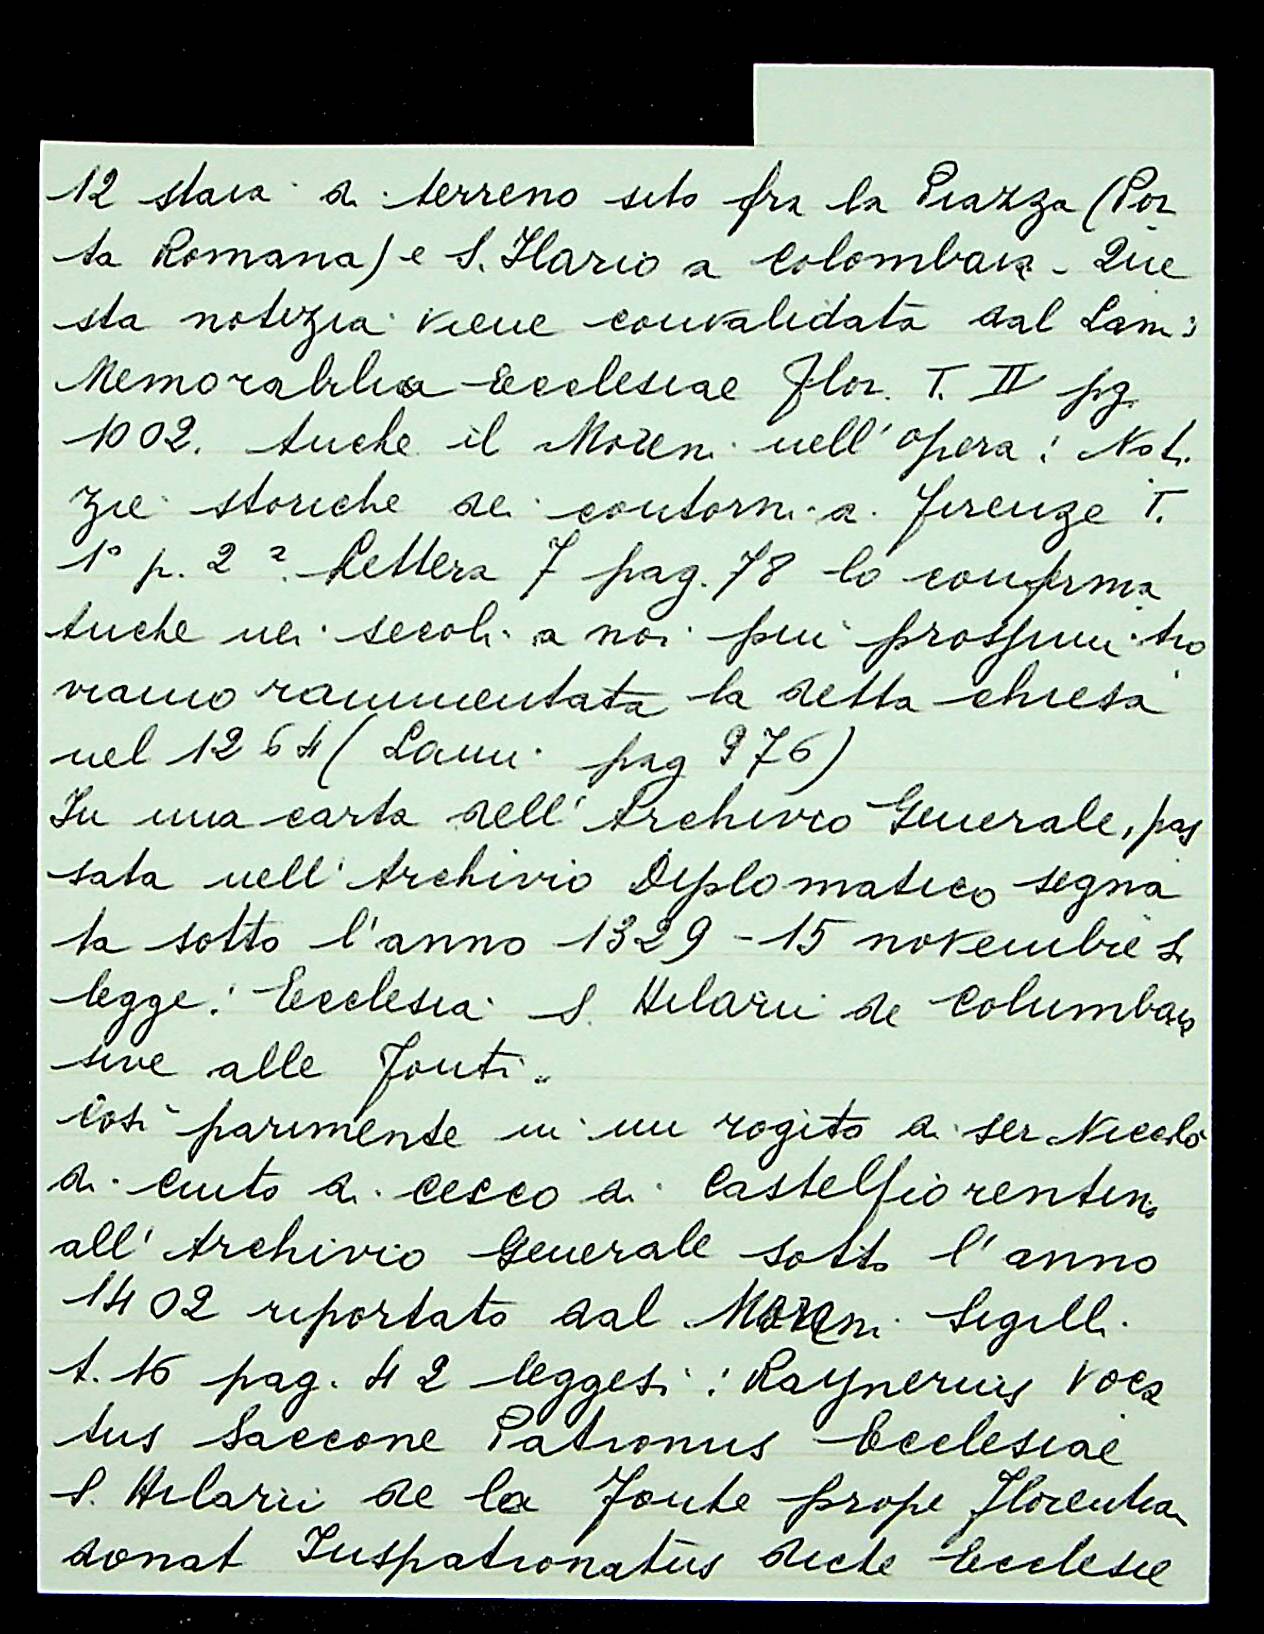 12 staia di terreno sito fra la Piazza (Por
ta Romana) e S. Ilario a Colombaia - Que
sta notizia viene convalidata dal Lami:
Memorabilia Ecclesiae Flor. T. II pg.
1002. Anche il Moreni nell'opera: Noti
zie storiche dei contorni di Firenze T.
1° p. 2ª. Lettera 7 pag. 78 lo conferma
Anche nei secoli a noi più prossimi tro
viamo rammentata la detta chiesa
nel 1264 (Lami pag 976)
In una carta dell'Archivio Generale, pas
sata nell'Archivio Diplomatico segna
ta sotto l'anno 1329 - 15 novembre si
legge: Ecclesia S. Hilarii de Columbaia
sive alle Fonti„
Così parimente in un rogito di ser Niccolò
di Cinto di Cecco di Castelfiorentino
all'Archivio Generale sotto l'anno
1402 riportato dal Moreni Sigilli
t. 16 pag. 42 leggesi: Raynerius voca
tus Saccone Patronus Ecclesiae
S. Hilarii de la Fonte prope Florentia
donat Iuspatronatus dicte Ecclesie